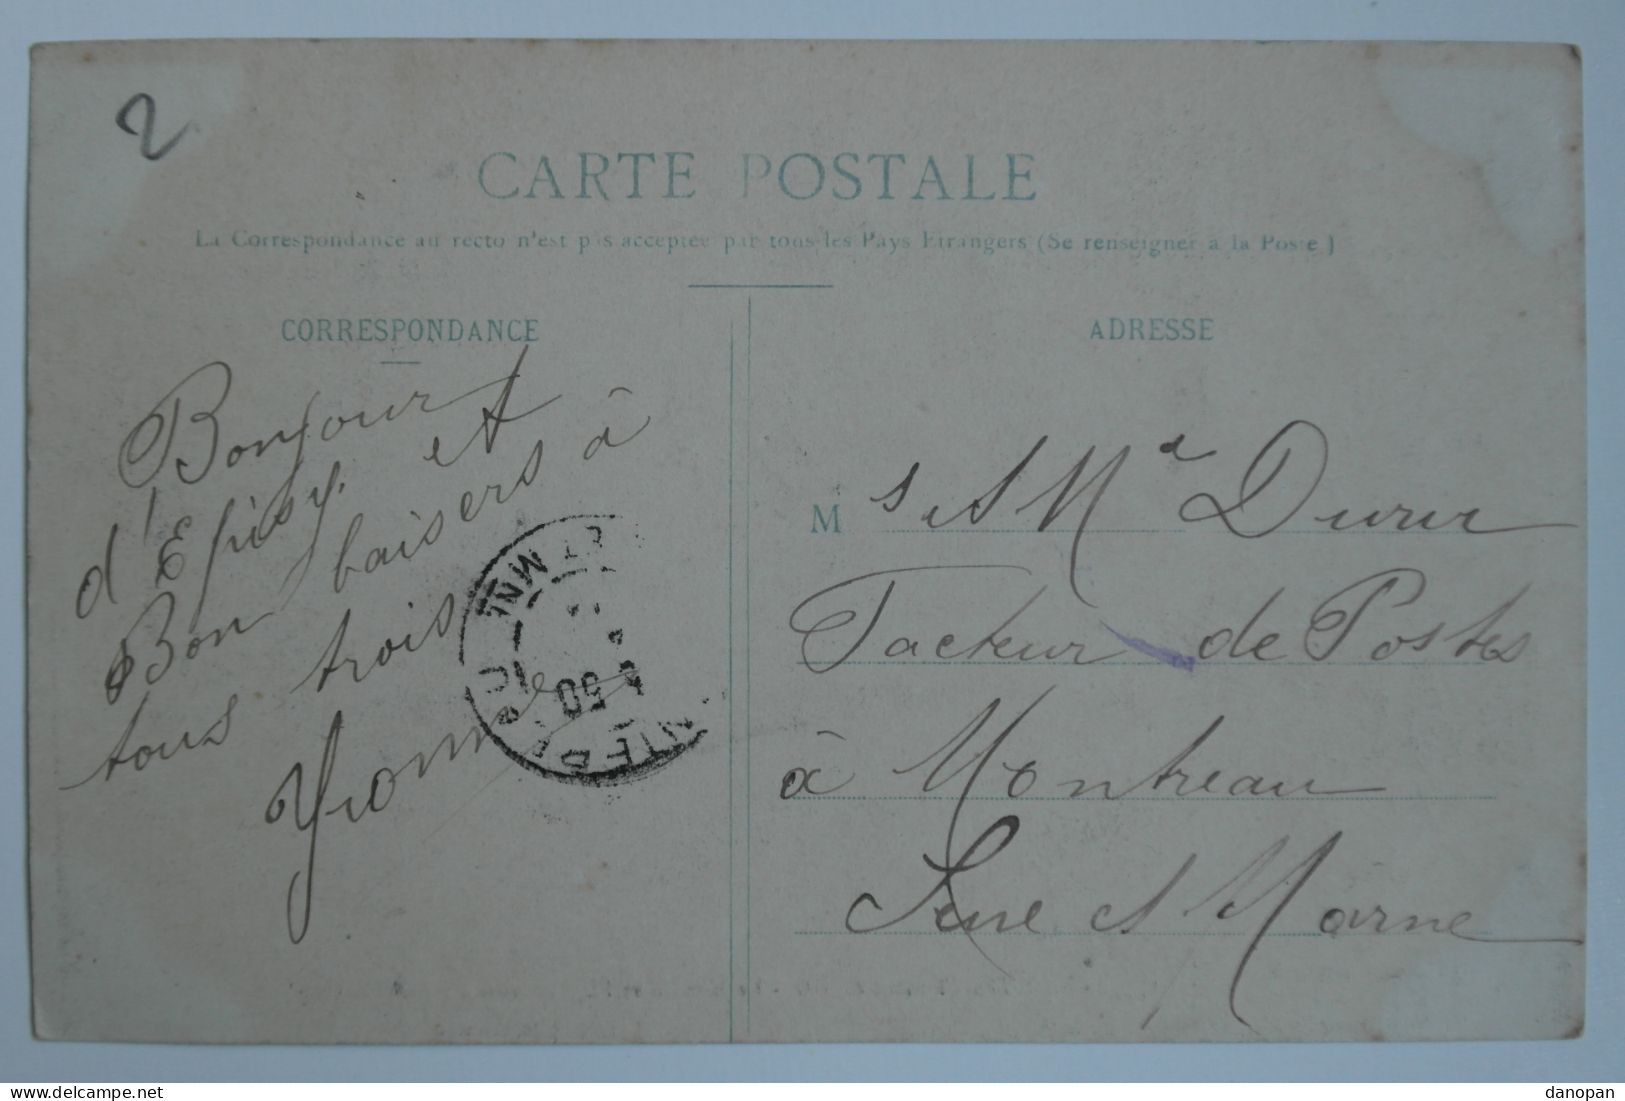 2
CARTE POSTALE
La Correspondance au recto n'est pas acceptée par tous les Pays Etrangers (Se renseigner à la Poste)
CORRESPONDANCE
Bonjour
d'Episy. et
Bon baisers à
tous trois
Yvonne
ADRESSE
M
Facteur de Postes
à Montreau
Seine et Marne
danopan
delcampe.net